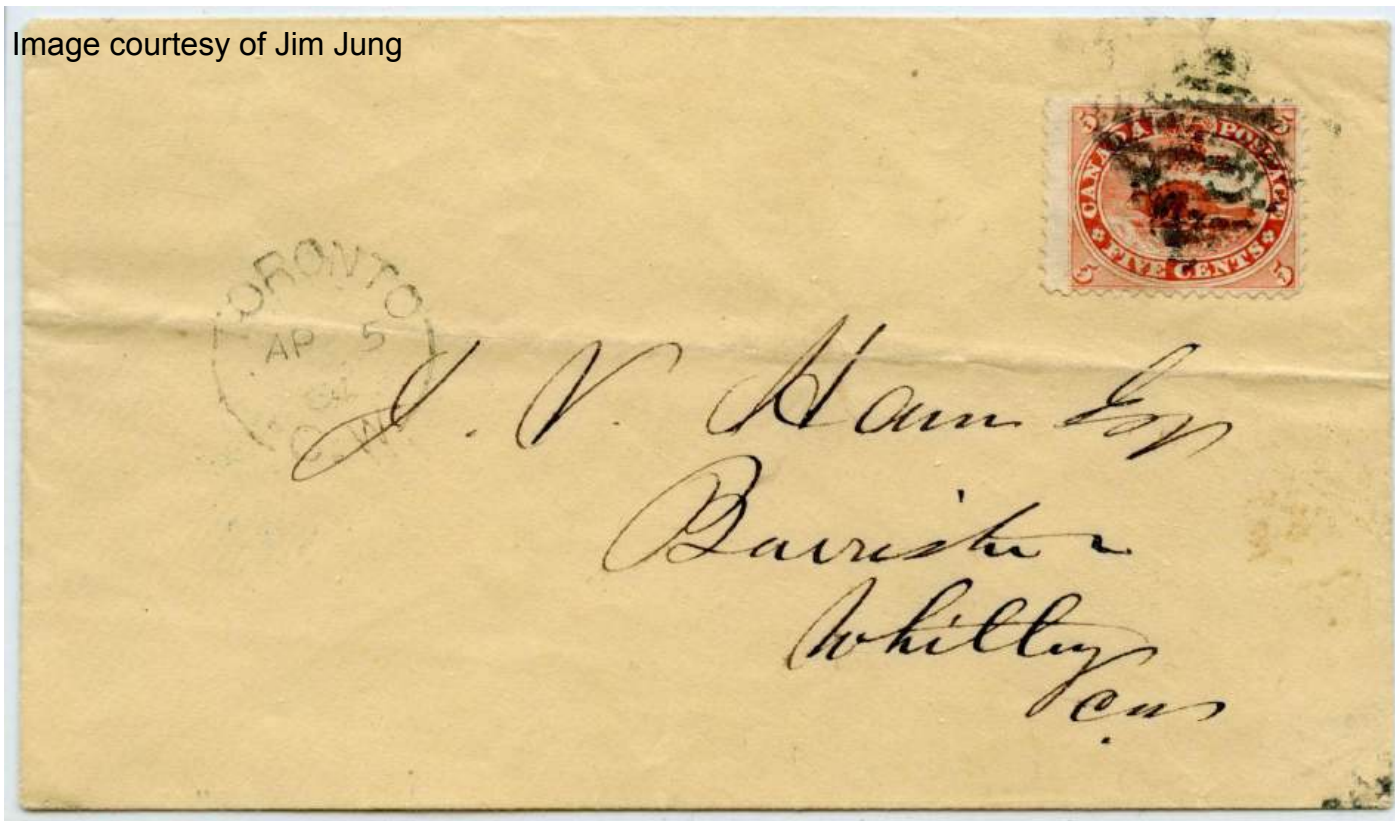 Image courtesy of Jim Jung
5 5
CANADA POSTAGE
FIVE CENTS
5 5
TORONTO
AP 5
64
C.W.
J. V. Ham Esq
Barrister
Whitby
CW